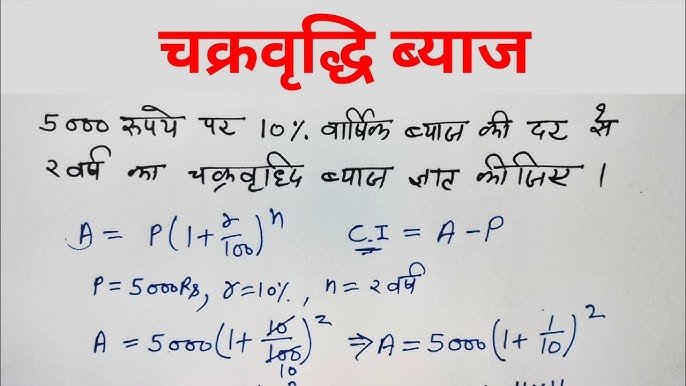 चक्रवृद्धि ब्याज
5000 रुपये पर 10% वार्षिक ब्याज की दर से
२ वर्ष का चक्रवृध्दि ब्याज ज्ञात कीजिए ।
A = P(1+r/100)^n C.I = A-P
P = 5000Rs, r=10%, n = २ वर्ष
A = 5000(1+10/100)^2 ⇒ A = 5000(1+1/10)^2
10